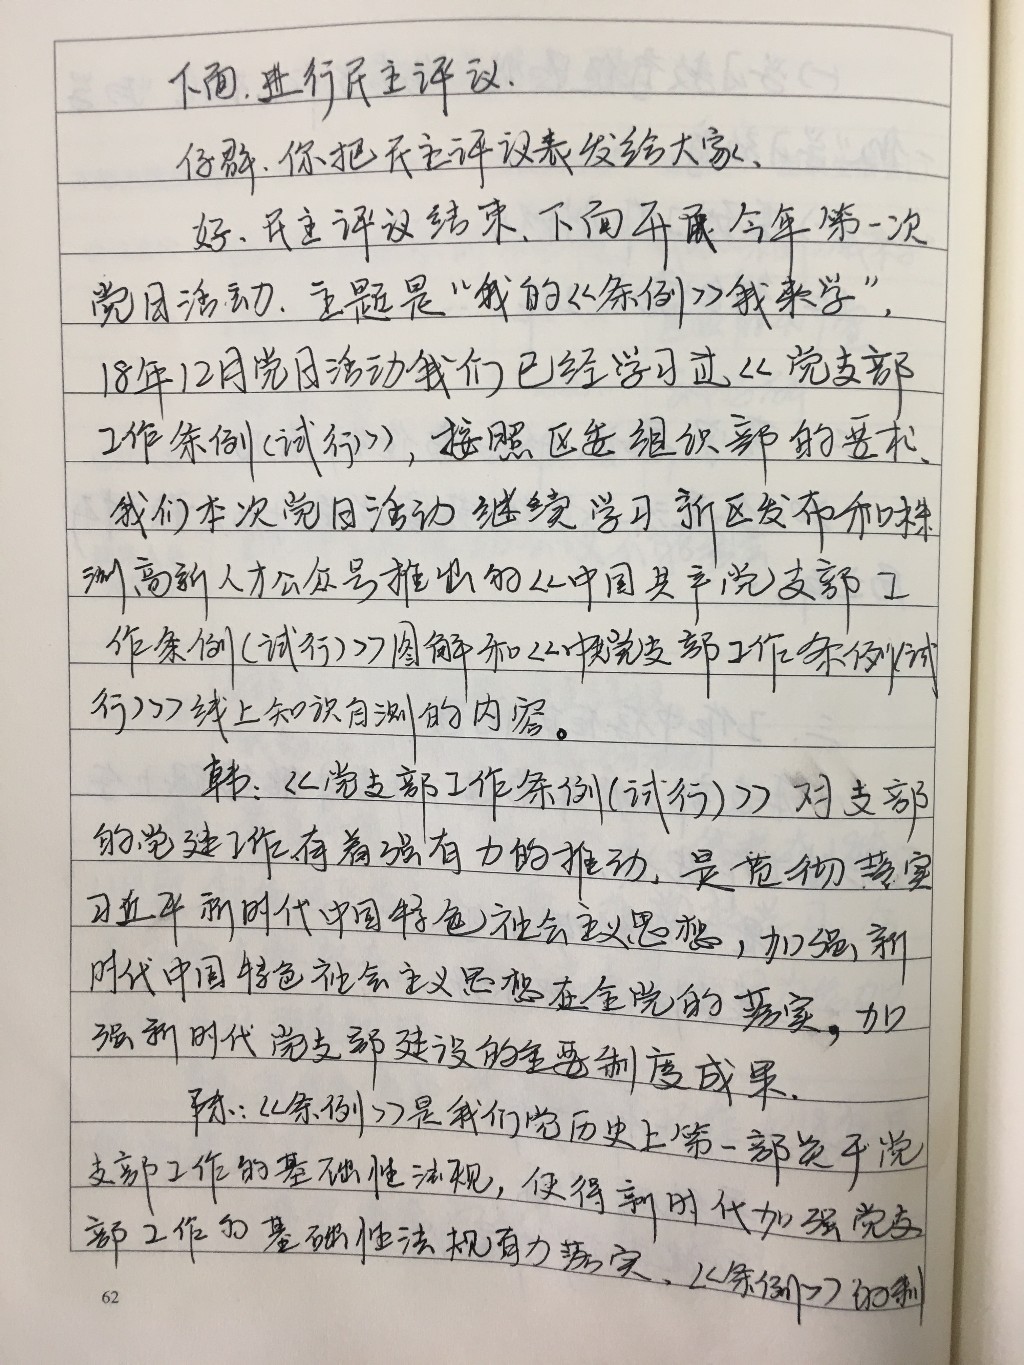 下面,进行民主评议.
仔群、你把民主评议表发给大家、
好、民主评议结束、下面开展今年第一次
党日活动、主题是“我的《条例》我来学”,
18年12月党日活动我们已经学习过《党支部
工作条例(试行)》,按照区委组织部的要求、
我们本次党日活动继续学习新区发布和株
洲高新人才公众号推出的《中国共产党支部工
作条例(试行)》图解和《中国党支部工作条例(试
行)》线上知识自测的内容。
韩:《党支部工作条例(试行)》对支部
的党建工作有着强有力的推动、是贯彻落实
习近平新时代中国特色社会主义思想,加强新
时代中国特色社会主义思想在全党的落实,加
强新时代党支部建设的重要制度成果.
陈:《条例》是我们党历史上第一部关于党
支部工作的基础性法规,使得新时代加强党支
部工作的基础性法规有力落实、《条例》的制
62